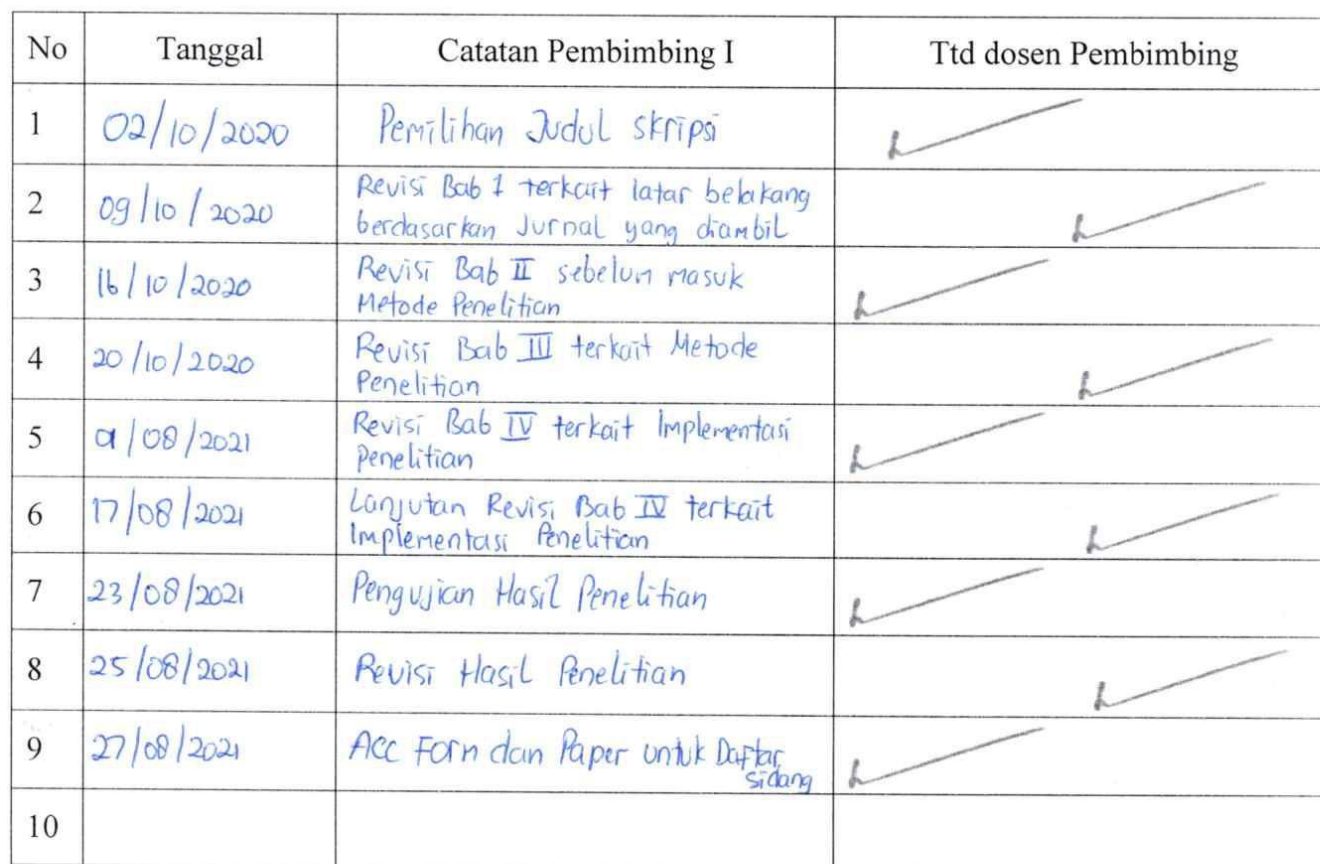 No Tanggal Catatan Pembimbing I Ttd dosen Pembimbing
1 02/10/2020 Pemilihan Judul skripsi
2 09/10/2020 Revisi Bab 1 terkait latar belakang
berdasarkan Jurnal yang diambil
3 16/10/2020 Revisi Bab II sebelum masuk
Metode Penelitian
4 20/10/2020 Revisi Bab III terkait Metode
Penelitian
5 /08/2021 Revisi Bab IV terkait Implementasi
Penelitian
6 17/08/2021 Lanjutan Revisi Bab IV terkait
Implementasi Penelitian
7 23/08/2021 Pengujian Hasil Penelitian
8 25/08/2021 Revisi Hasil Penelitian
9 27/08/2021 ACC Form dan Paper untuk Daftar
sidang
10